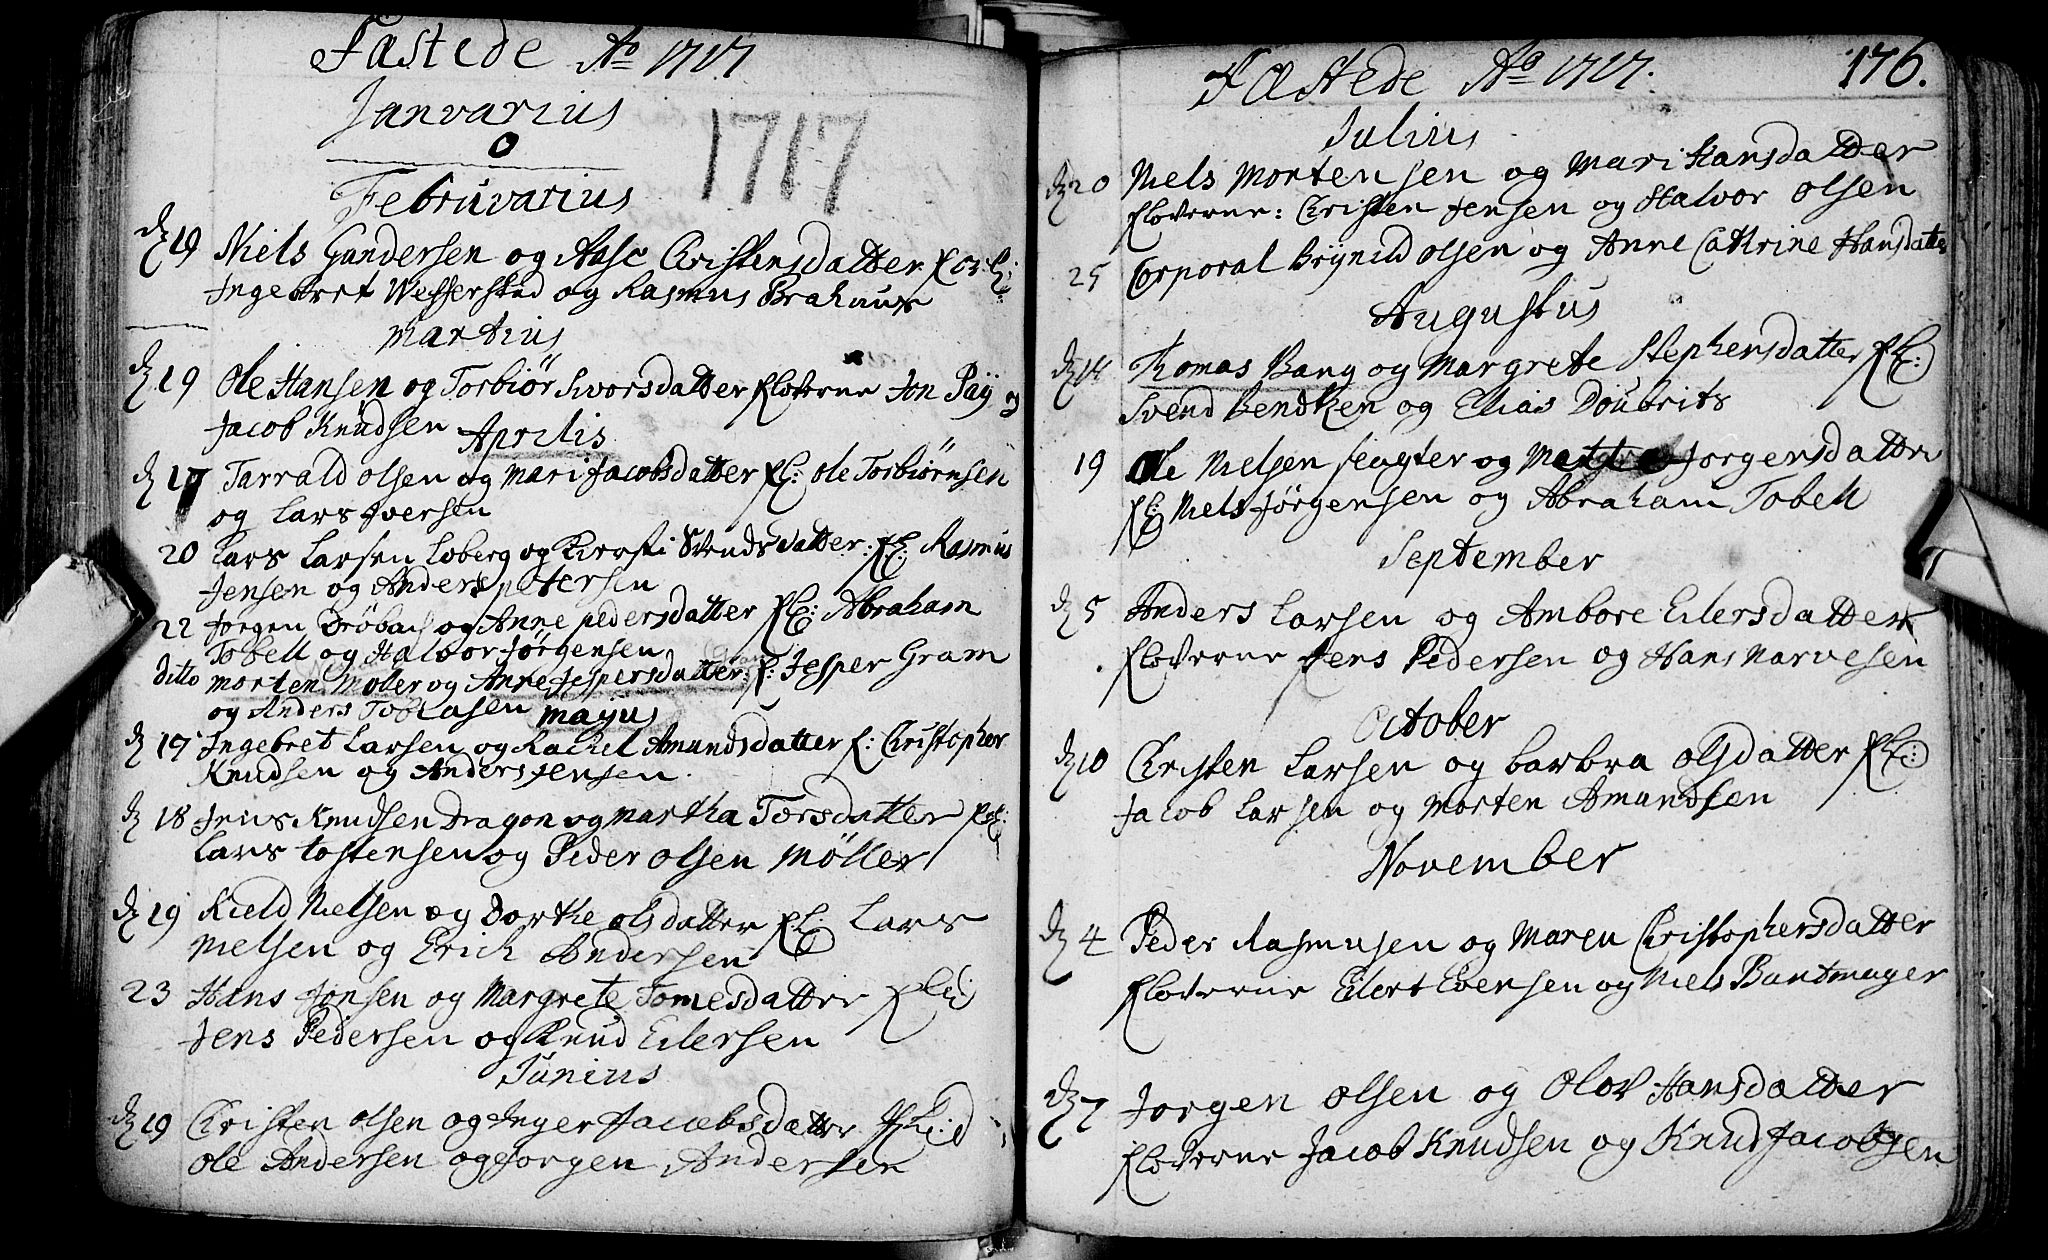 Fæstede Ao 1717
Janvarius
0
1717
Februvarius
d 19 Niels Gundersen og Aase Christensdatter
Ingebret Wessersted og Rasmus Brahuus
Martius
d 19 Ole Hansen og Torbiør Ivorsdatter Floverne Jon Paÿ og
Jacob Knudsen
Aprilis
d 17 Tarrald Olsen og Mari Jacobsdatter Fl: Ole Torbiørnsen
og Lars Iversen
20 Lars Larsen Loberg og Kiersti Svendsdatter: Fl: Rasmus
Jensen og Anders Petersen
22 Jorgen Drøbach og Anne Pedersdatter Fl: Abraham
Tobell og Halvor Jørgensen
ditto Morten Moler og Anne Jespersdatter: F: Jesper Gram
og Anders Tobiasen
Majus
d 17 Ingebret Larsen og Rachel Amundsdatter F: Christopher
Knudsen og Anders Jensen.
d 18 Jens Knudsen Dragon og Martha Torsdatter Fl:
Lars Tostensen og Peder Olsen Møller
d 19 Kield Nielsen og Dorthe Olsdatter Fl: Lars
Nielsen og Erich Andersen
23 Hans Jonsen og Margrete Tomesdatter Fl:
Jens Pedersen og Knud Eilersen
Junius
d 19 Christen Olsen og Inger Jacobsdatter Fl:
Ole Andersen og Jorgen Andersen
Fæstede Ao 1717.
176.
Julius
d 20 Niels Mortensen og Mari Hansdatter
Floverne: Christen Jensen og Halvor Olsen
25 Corporal Brÿnild Olsen og Anne Cathrine Hansdatter
Augustus
d 14 Thomas Bang og Margrete Stephensdatter Fl:
Svend Bendken og Elias Doubrits
19 Ole Nielsen feugter og Jorgensdatter
Fl: Niels Jørgensen og Abraham Tobell
September
d 5 Anders Larsen og Ambore Eilersdatter
Floverne Jens Pedersen og Hans Narvesen
October
d 10 Christen Larsen og Barbra Olsdatter Fl:
Jacob Larsen og Morten Amundsen
November
d 4 Peder Rasmusen og Maren Christophersdatter
Floverne Eilert Evensen og Niels Buntmager
d 7 Jorgen Olsen og Olov Hansdatter
Floverne Jacob Knudsen og Knud Jacobsen